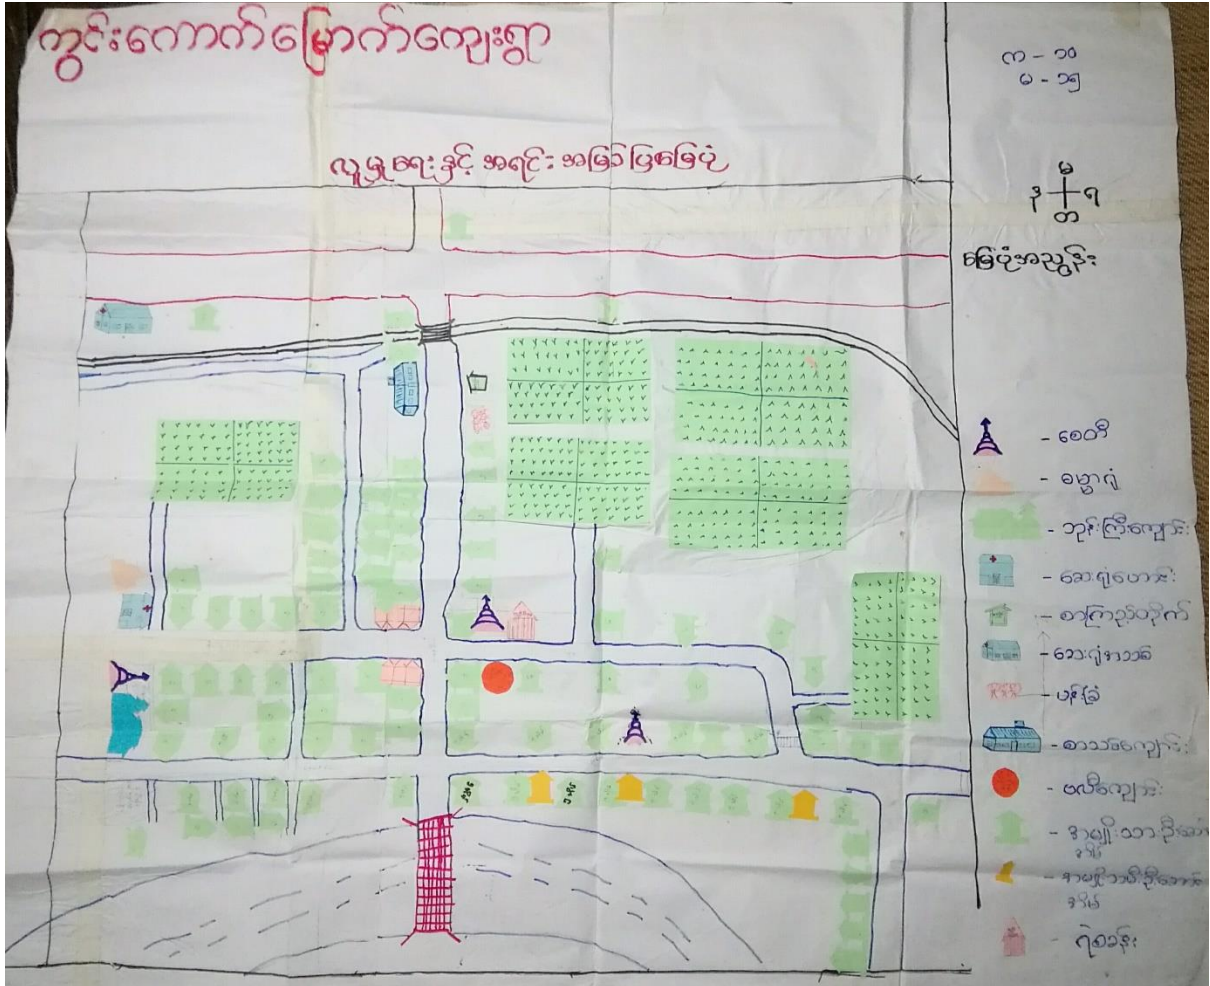 ကွင်းကောက်မြောက်ကျေးရွာ
က - ၁၀
မ - ၁၅
လူမှုရေးနှင့် အရင်းအမြစ်ပြမြေပုံ
မ
န
ရ
တ
မြေပုံအညွှန်း
- စေတီ
- ဓမ္မာရုံ
- ဘုန်းကြီးကျောင်း
- ဆေးရုံဟောင်း
- စာကြည့်တိုက်
- ဆေးရုံအသစ်
- ပန်းခြံ
- စာသင်ကျောင်း
- ဗလီကျောင်း
- အမျိုးသားဦးဆောင်
အိမ်
- အမျိုးသမီးဦးဆောင်
အိမ်
- ရဲစခန်း